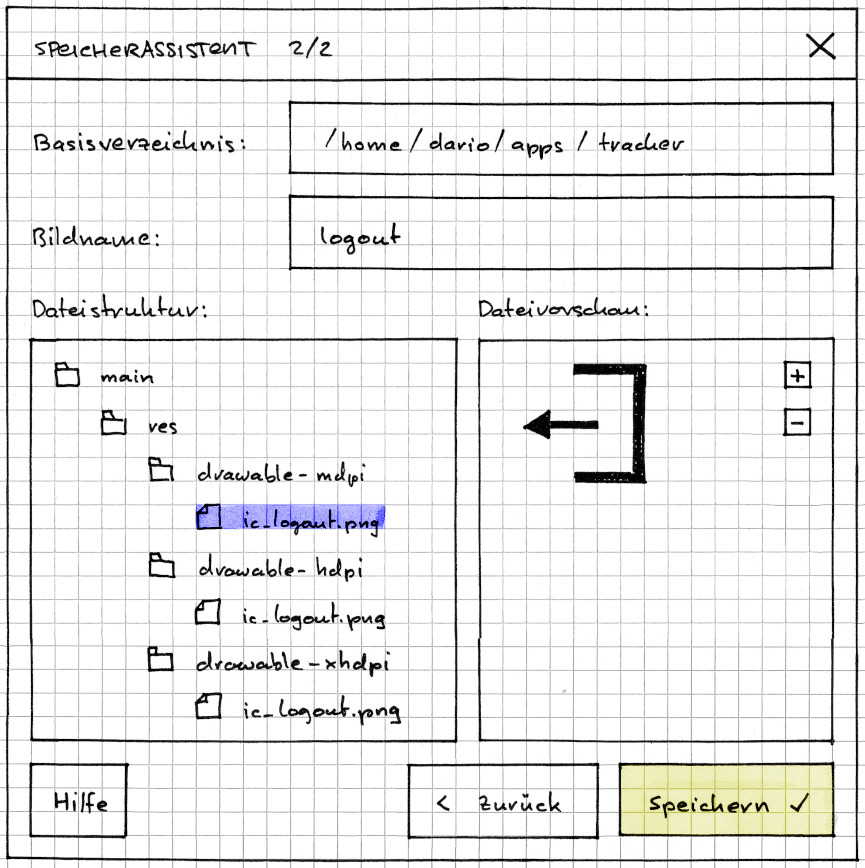 SPEICHERASSISTENT 2/2
Basisverzeichnis: /home/dario/apps/tracker
Bildname: logout
Dateistruktur:
Dateivorschau:
main
res
drawable-mdpi
ic_logout.png
drawable-hdpi
ic_logout.png
drawable-xhdpi
ic_logout.png
+
-
Hilfe
< Zurück
Speichern ✓